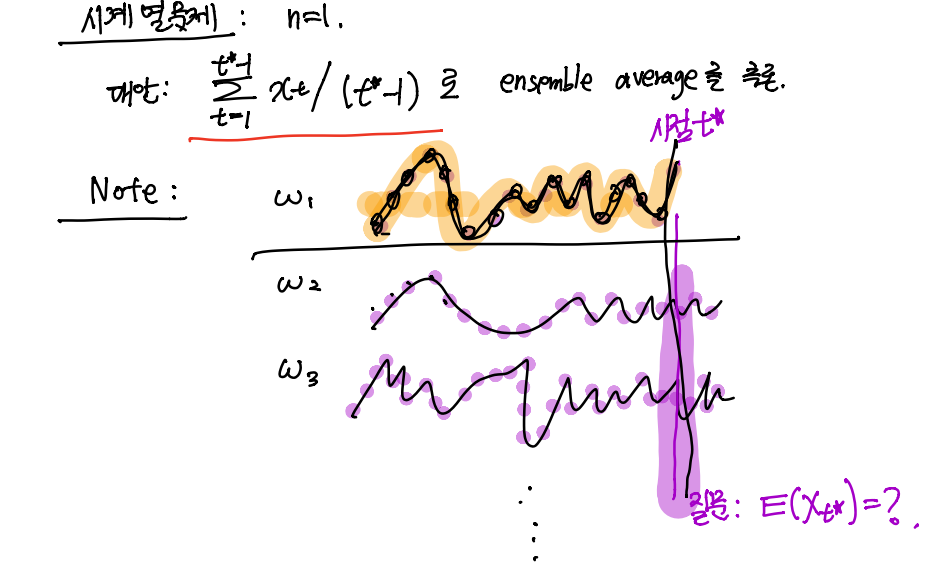 시계열문제 : n=1.
대안: \sum_{t=1}^{t^*-1} x_t / (t^*-1) 로 ensemble average를 추론.
시점 t*
Note :
ω₁
ω₂
ω₃
질문: E(X_{t*})=?.